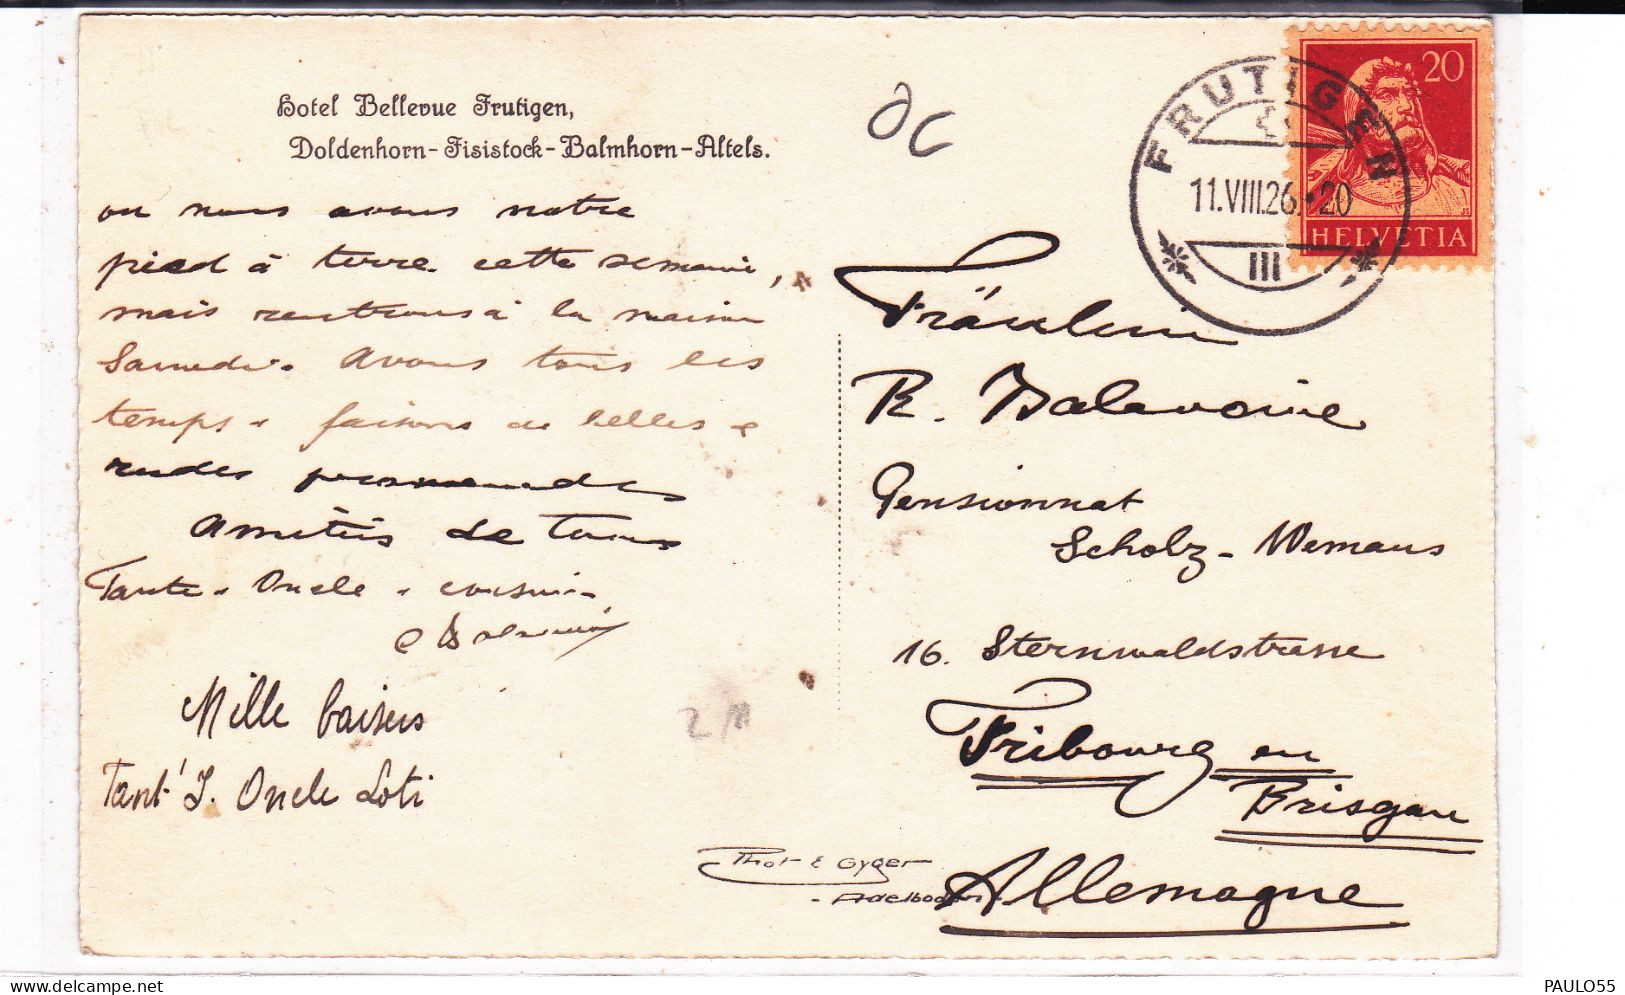 Hotel Bellevue Frutigen,
Doldenhorn-Fisistock-Balmhorn-Altels.
ou nous avons notre
pied à terre cette semaine,
mais rentrons à la maison
Samedi. Avons tous les
temps & faisons de belles &
rudes promenades
Amitiés de tous
Tante - Oncle - cousin -
Mille baisers
Tant' J. Oncle Loti
Phot E Gyger
- Adelboden -
FRUTIGEN
11.VIII.26.·20
III
20
HELVETIA
Fräulein
R. Balavoine
Pensionnat
Scholz - Wemans
16. Sternwaldstrasse
Fribourg en
Brisgau
Allemagne
PAULO55